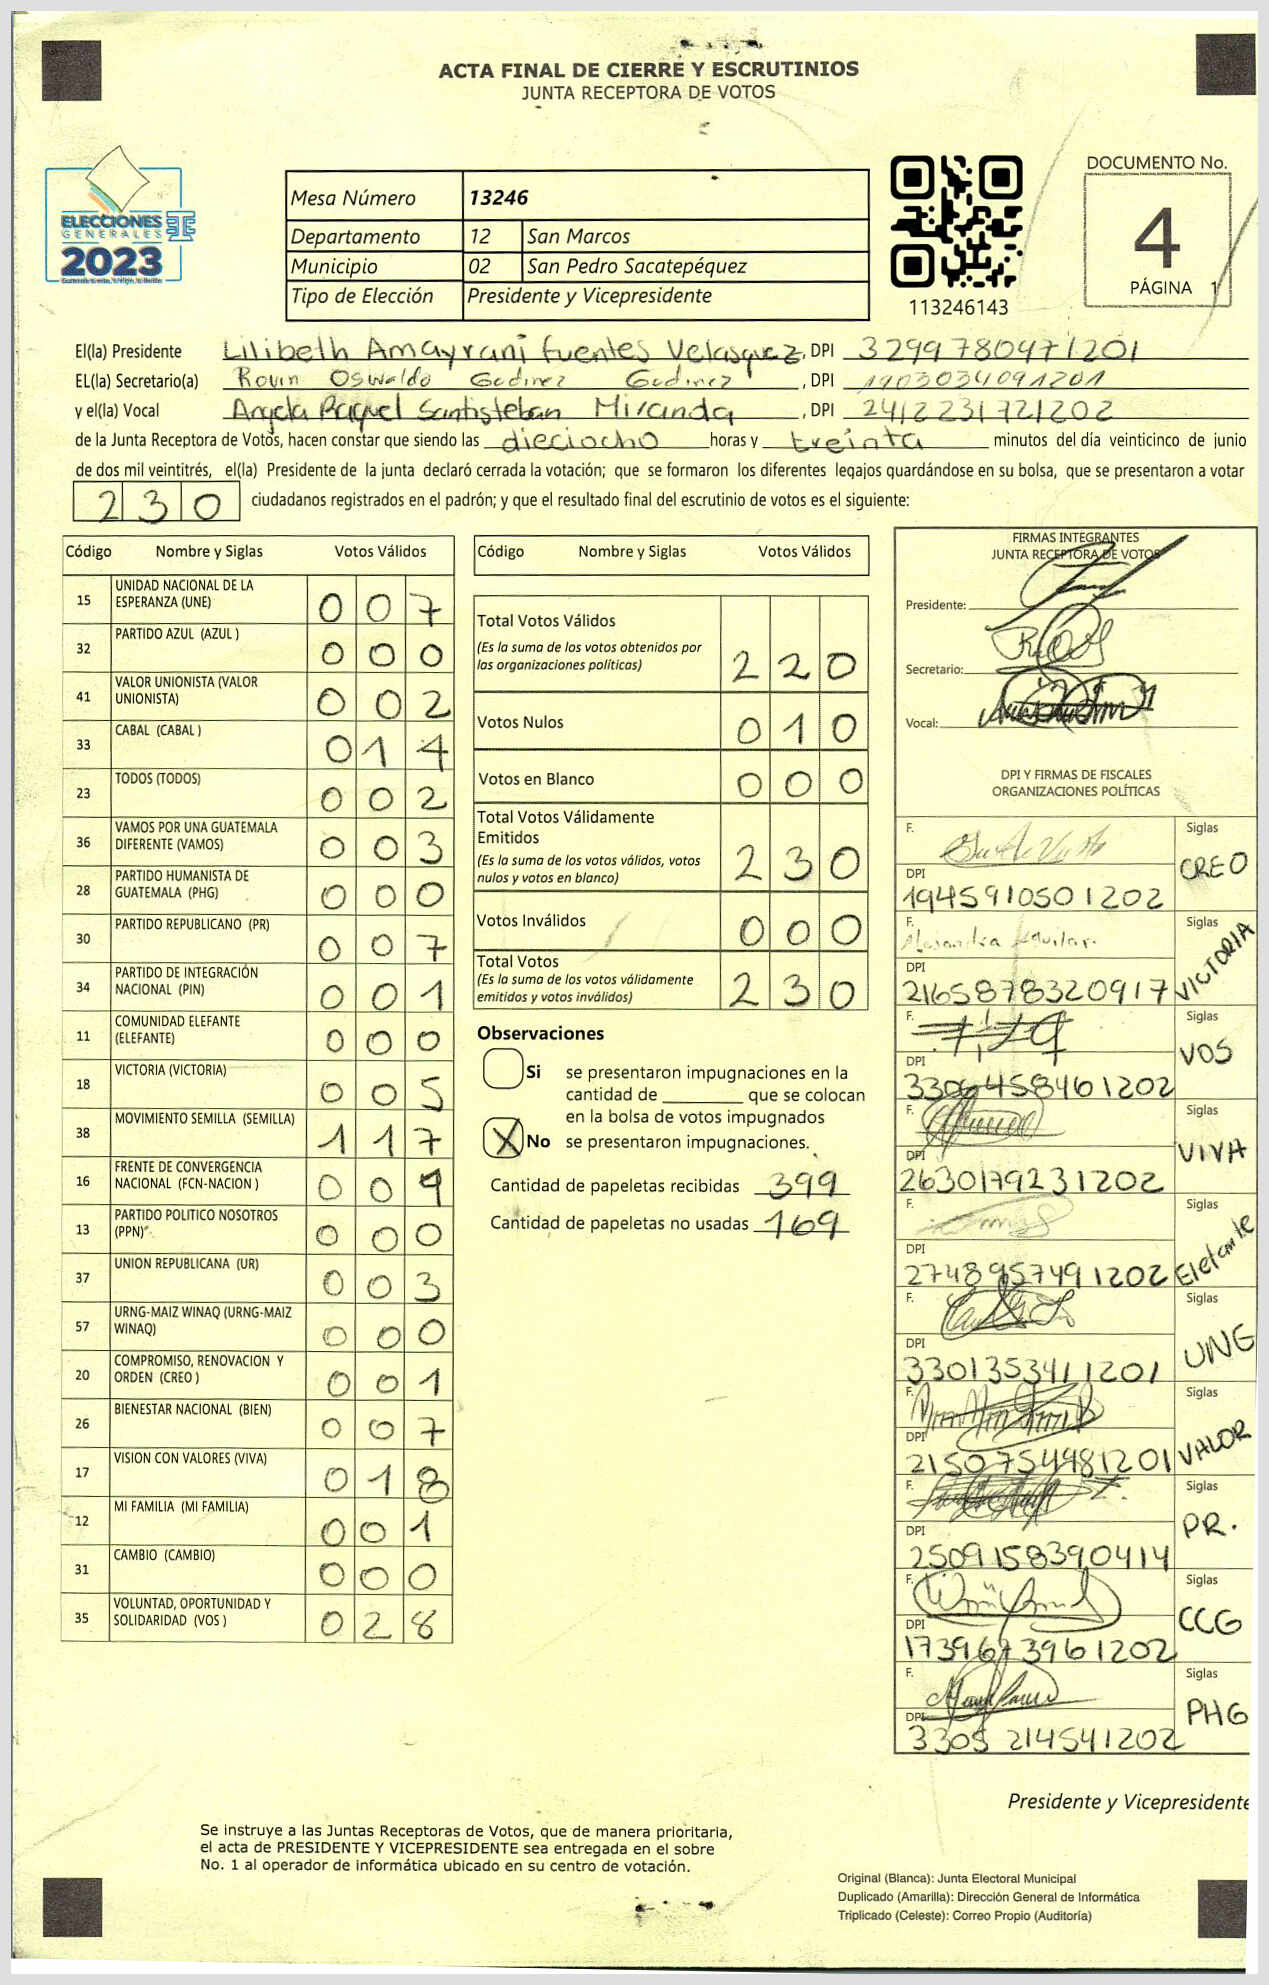 ACTA FINAL DE CIERRE Y ESCRUTINIOS
JUNTA RECEPTORA DE VOTOS
ELECCIONES
GENERALES
2023
Mesa Número 13246
Departamento 12 San Marcos
Municipio 02 San Pedro Sacatepéquez
Tipo de Elección Presidente y Vicepresidente
113246143
DOCUMENTO No.
4
PÁGINA 1
El(la) Presidente Lilibeth Amayrani Fuentes Velasquez, DPI 3299780971201
EL(la) Secretario(a) Rovin Oswaldo Godinez Godinez, DPI 1903034091201
y el(la) Vocal Angela Raquel Santisteban Miranda, DPI 2412231721202
de la Junta Receptora de Votos, hacen constar que siendo las dieciocho horas y treinta minutos del día veinticinco de junio
de dos mil veintitrés, el(la) Presidente de la junta declaró cerrada la votación; que se formaron los diferentes legajos quardándose en su bolsa, que se presentaron a votar
230 ciudadanos registrados en el padrón; y que el resultado final del escrutinio de votos es el siguiente:
Código Nombre y Siglas Votos Válidos
15 UNIDAD NACIONAL DE LA ESPERANZA (UNE) 007
32 PARTIDO AZUL (AZUL ) 000
41 VALOR UNIONISTA (VALOR UNIONISTA) 002
33 CABAL (CABAL ) 014
23 TODOS (TODOS) 002
36 VAMOS POR UNA GUATEMALA DIFERENTE (VAMOS) 003
28 PARTIDO HUMANISTA DE GUATEMALA (PHG) 000
30 PARTIDO REPUBLICANO (PR) 007
34 PARTIDO DE INTEGRACIÓN NACIONAL (PIN) 001
11 COMUNIDAD ELEFANTE (ELEFANTE) 000
18 VICTORIA (VICTORIA) 005
38 MOVIMIENTO SEMILLA (SEMILLA) 117
16 FRENTE DE CONVERGENCIA NACIONAL (FCN-NACION ) 004
13 PARTIDO POLITICO NOSOTROS (PPN) 000
37 UNION REPUBLICANA (UR) 003
57 URNG-MAIZ WINAQ (URNG-MAIZ WINAQ) 000
20 COMPROMISO, RENOVACION Y ORDEN (CREO ) 001
26 BIENESTAR NACIONAL (BIEN) 007
17 VISION CON VALORES (VIVA) 018
12 MI FAMILIA (MI FAMILIA) 001
31 CAMBIO (CAMBIO) 000
35 VOLUNTAD, OPORTUNIDAD Y SOLIDARIDAD (VOS ) 028
Código Nombre y Siglas Votos Válidos
Total Votos Válidos 220
(Es la suma de los votos obtenidos por
las organizaciones políticas)
Votos Nulos 010
Votos en Blanco 000
Total Votos Válidamente
Emitidos 230
(Es la suma de los votos válidos, votos
nulos y votos en blanco)
Votos Inválidos 000
Total Votos 230
(Es la suma de los votos válidamente
emitidos y votos inválidos)
Observaciones
Si se presentaron impugnaciones en la
cantidad de ________ que se colocan
en la bolsa de votos impugnados
X No se presentaron impugnaciones.
Cantidad de papeletas recibidas 399
Cantidad de papeletas no usadas 169
FIRMAS INTEGRANTES
JUNTA RECEPTORA DE VOTOS
Presidente:
Secretario:
Vocal:
DPI Y FIRMAS DE FISCALES
ORGANIZACIONES POLÍTICAS
F. Siglas CREO
DPI 1945910501202
F. Alejandra Aguilar. Siglas VICTORIA
DPI 2165878320917
F. Siglas VOS
DPI 3306458461202
F. Siglas VIVA
DPI 2630179231202
F. Siglas Elefante
DPI 2748957491202
F. Siglas UNG
DPI 3301353411201
F. Siglas VALOR
DPI 2150754981201
F. Siglas PR.
DPI 2509158390414
F. Siglas CCG
DPI 1739673961202
F. Siglas PHG
DPI 3305 214541202
Presidente y Vicepresidente
Se instruye a las Juntas Receptoras de Votos, que de manera prioritaria,
el acta de PRESIDENTE Y VICEPRESIDENTE sea entregada en el sobre
No. 1 al operador de informática ubicado en su centro de votación.
Original (Blanca): Junta Electoral Municipal
Duplicado (Amarilla): Dirección General de Informática
Triplicado (Celeste): Correo Propio (Auditoría)